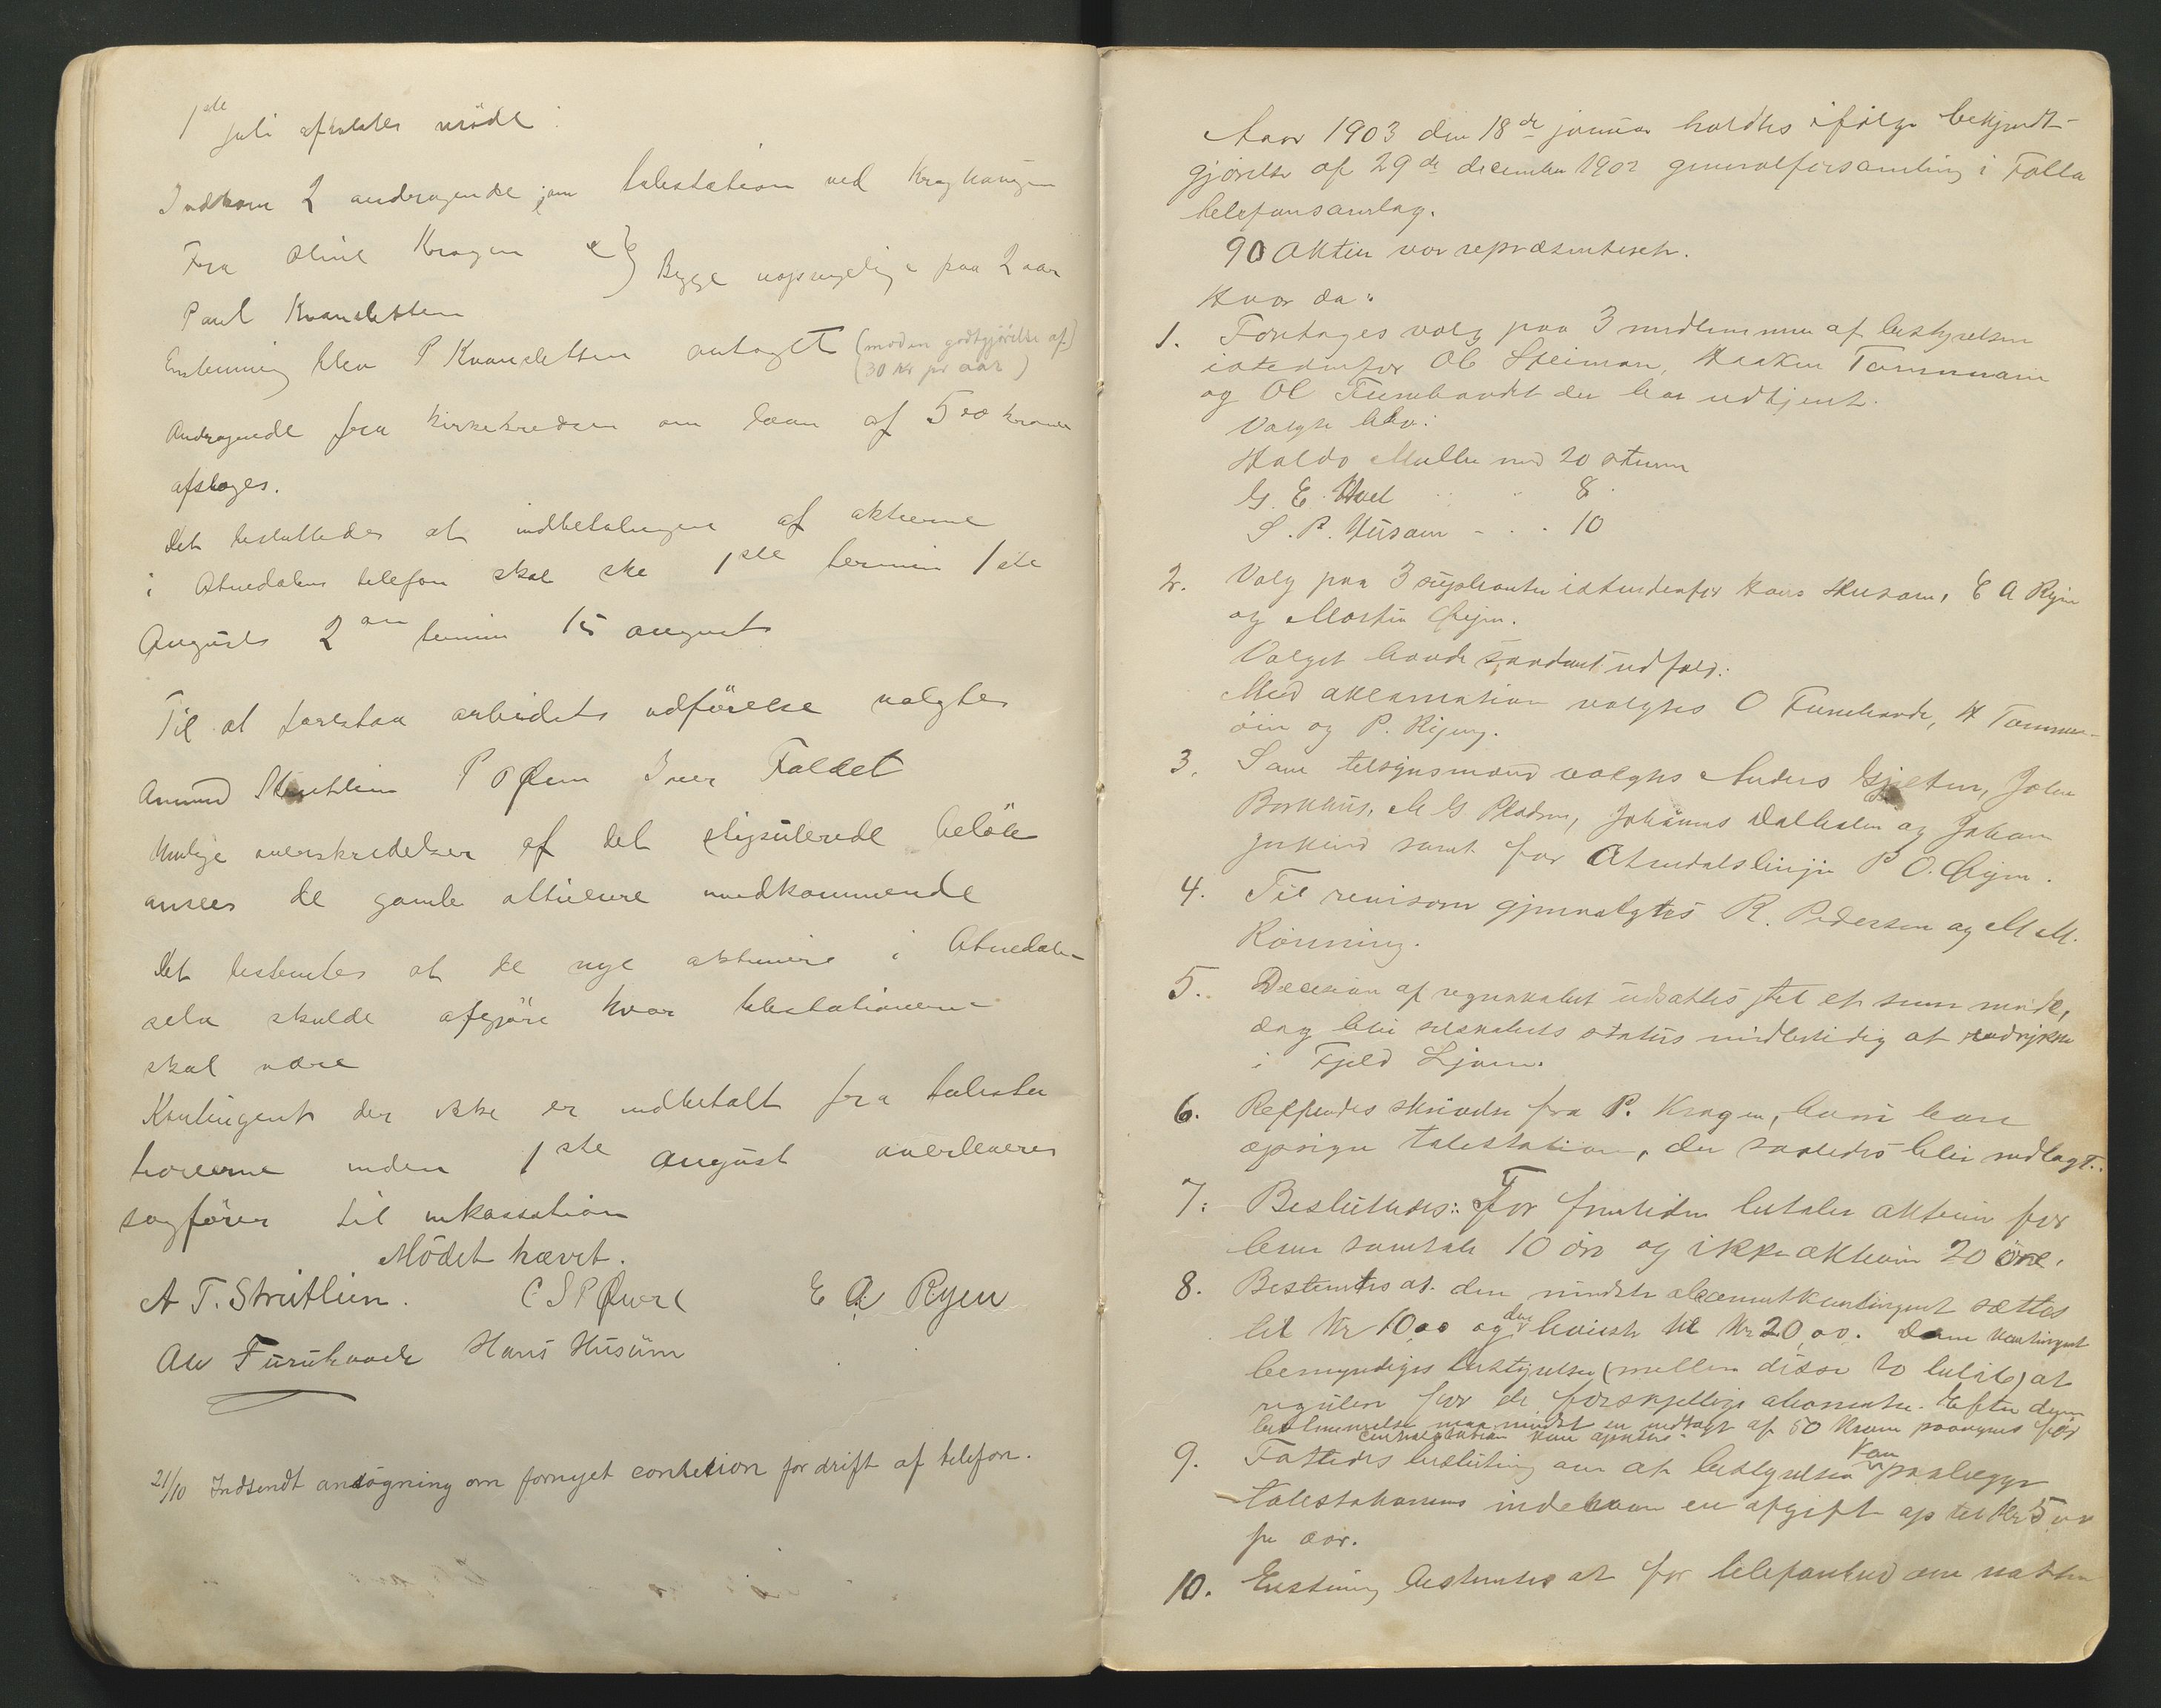 1ste juli afholdtes möde
Indkom 2 andragende om talestation ved Kroghaugen
Fra Oline Krogen
Paul Kvansletten } Begge uopsigelig paa 2 aar
Enstemmig blev P Kvansletten antaget (mod en godtgjörelse af)
(30 Kr pr aar)
Andragende fra kirkekredsen om laan af 500 kroner
afsloges.
Det besluttedes at indbetalingen af aktierne
i Atnedalens telefon skal ske 1ste termin 1ste
August 2den termin 15 august
Til at forestaa arbeidets udförelse valgtes
Amund Streitlien P O Øien Iver Faldet
Mulige overskridelser af det stipulerede belöb
ansees de gamle aktieeiere vedkommende
Det bestemtes at de nye aktieeiere i Atnedalen
selv skulde afgjöre hvor talestationerne
skal være
Kontingent der ikke er indbetalt fra talesta
tionerne inden 1ste august overleveres
sagförer til inkassation
Mödet hævet.
A T. Streitlien. E A Ryen
Ole Furuhovde Hans Husum
21/10 Indsendt ansögning om fornyet concession for drift af telefon.
Aar 1903 den 18de januar holdtes ifölge bekjendt-
gjörelse af 29de december 1902 generalforsamling i Folla
telefonsamlag.
90 Aktier var repræsenteret.
Hvor da:
1. Foretages valg paa 3 medlemmer af bestyrelsen
istedenfor Ol Steimoen, Haakon Tommeraasen
og Ol Furuhovde der har udtjent.
Valgte blev:
Haldo Mælen med 20 stemmer
G. E. Hovel 8
S. P. Husom - - - 10
2. Valg paa 3 supleanter istedenfor Hans Husom, E A Ryen
og Morten Øien.
Valget havde saadant udfald:
Med aklamation valgtes O Furuhovde, H Tommer-
öien og P. Rijen.
3. Som tilsynsmænd valgtes Anders Gjelten, John
Borkhus, M G Pladsen, Johannes Dalholen og Johan
samt for Atnedalslinjen P O. Øien.
4. Til revisorer gjenvalgtes R. Pedersen og M M.
Rönning.
5. Decision af regnskabet udsattes til et senere möde,
dog blir selskabets status midlertidig at indrykke
i Fjeld Ljom.
6. Refferertes skrivelse fra P. Krogen, hvori han
opsiger talestation, der saaledes blir nedlagt.
7. Besluttedes: For fremtiden betaler aktieeier for
hver samtale 10 öre og ikke aktieeier 20 öre.
8. Bestemtes at den mindste abonnentkontingent sættes
til Kr 10,00 og den höieste til Kr 20,00. Denne kontingent
bemyndiges bestyrelsen (mellem disse to beløb) at
regulere for de forskjellige abonnenter. Efter denne
bestemmelse maa mindst en indtægt af 50 Kroner paaregnes för
centralstation kan oprettes.
9. Fattedes beslutning om at bestyrelsen kan paalægge
talestationens indehaver en afgift op til Kr 5,00
pr aar.
10. Enstemmig bestemtes at for telefonbud om natten